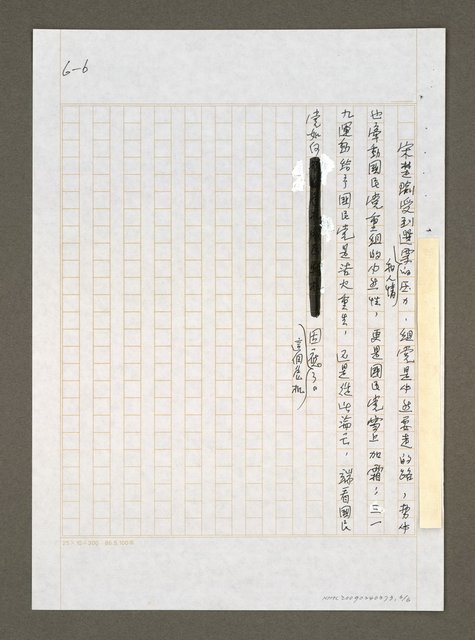 6-6
宋楚瑜受到選票的压力，組党是必然要走的路，勢必
和人情
也牽動國民党重組的必然性，更是國民党雪上加霜；三一
九運動給予國民党是浴火重生，还是從此淪亡，端看國民
党如何
因應了。
這個危机
25×12=300 86.5.100本